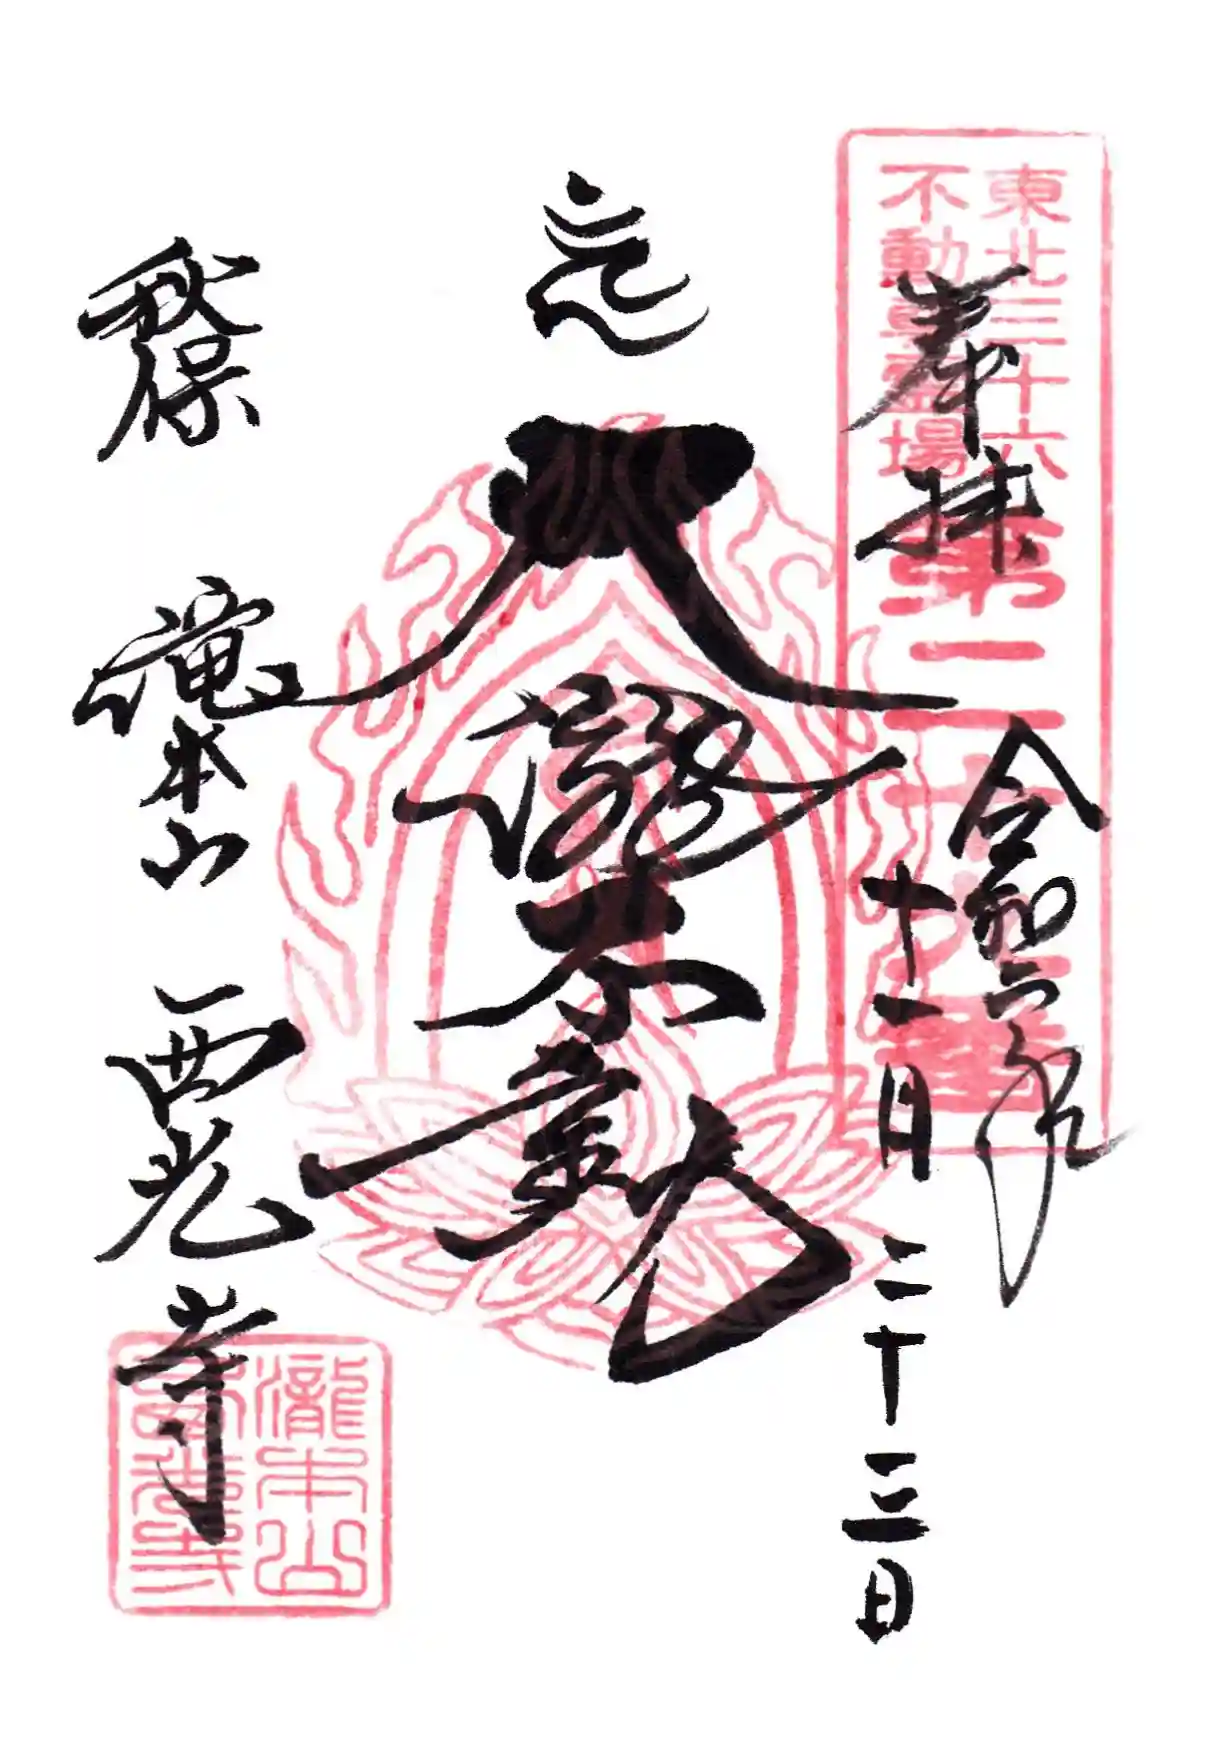 東北三十六
不動尊霊場
第二十
奉拝
令和六年
十一月二十三日
大瀧不動
秋保
滝本山
西光寺
瀧本山
西光寺